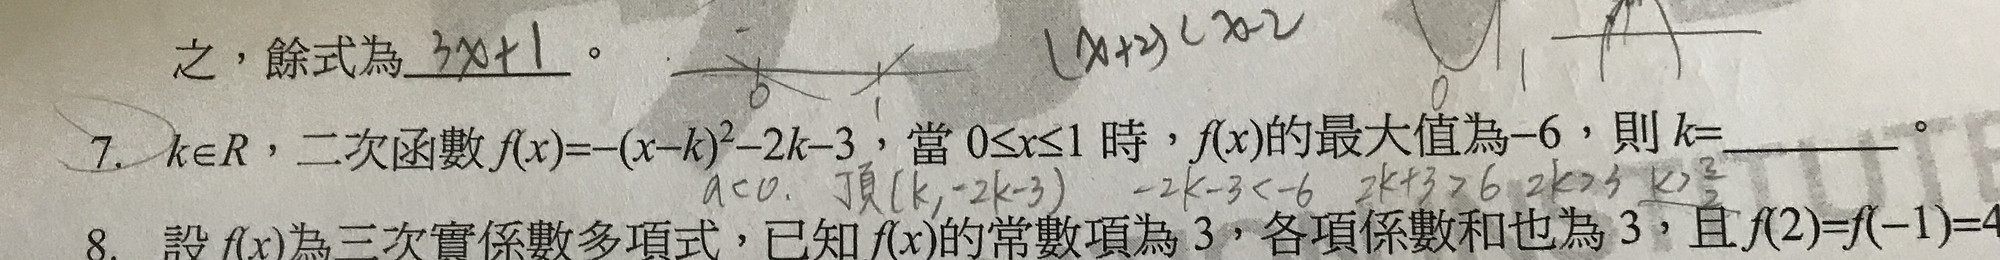 之，餘式為 3x+1 。
(x+2)(x-2
0 1
0 1
7. k∈R，二次函數 f(x)=−(x−k)²−2k−3，當 0≤x≤1 時，f(x)的最大值為−6，則 k=________。
a<0. 頂(k,-2k-3) -2k-3<-6 2k+3>6 2k>3 k>3/2
8. 設 f(x)為三次實係數多項式，已知 f(x)的常數項為 3，各項係數和也為 3，且 f(2)=f(−1)=4